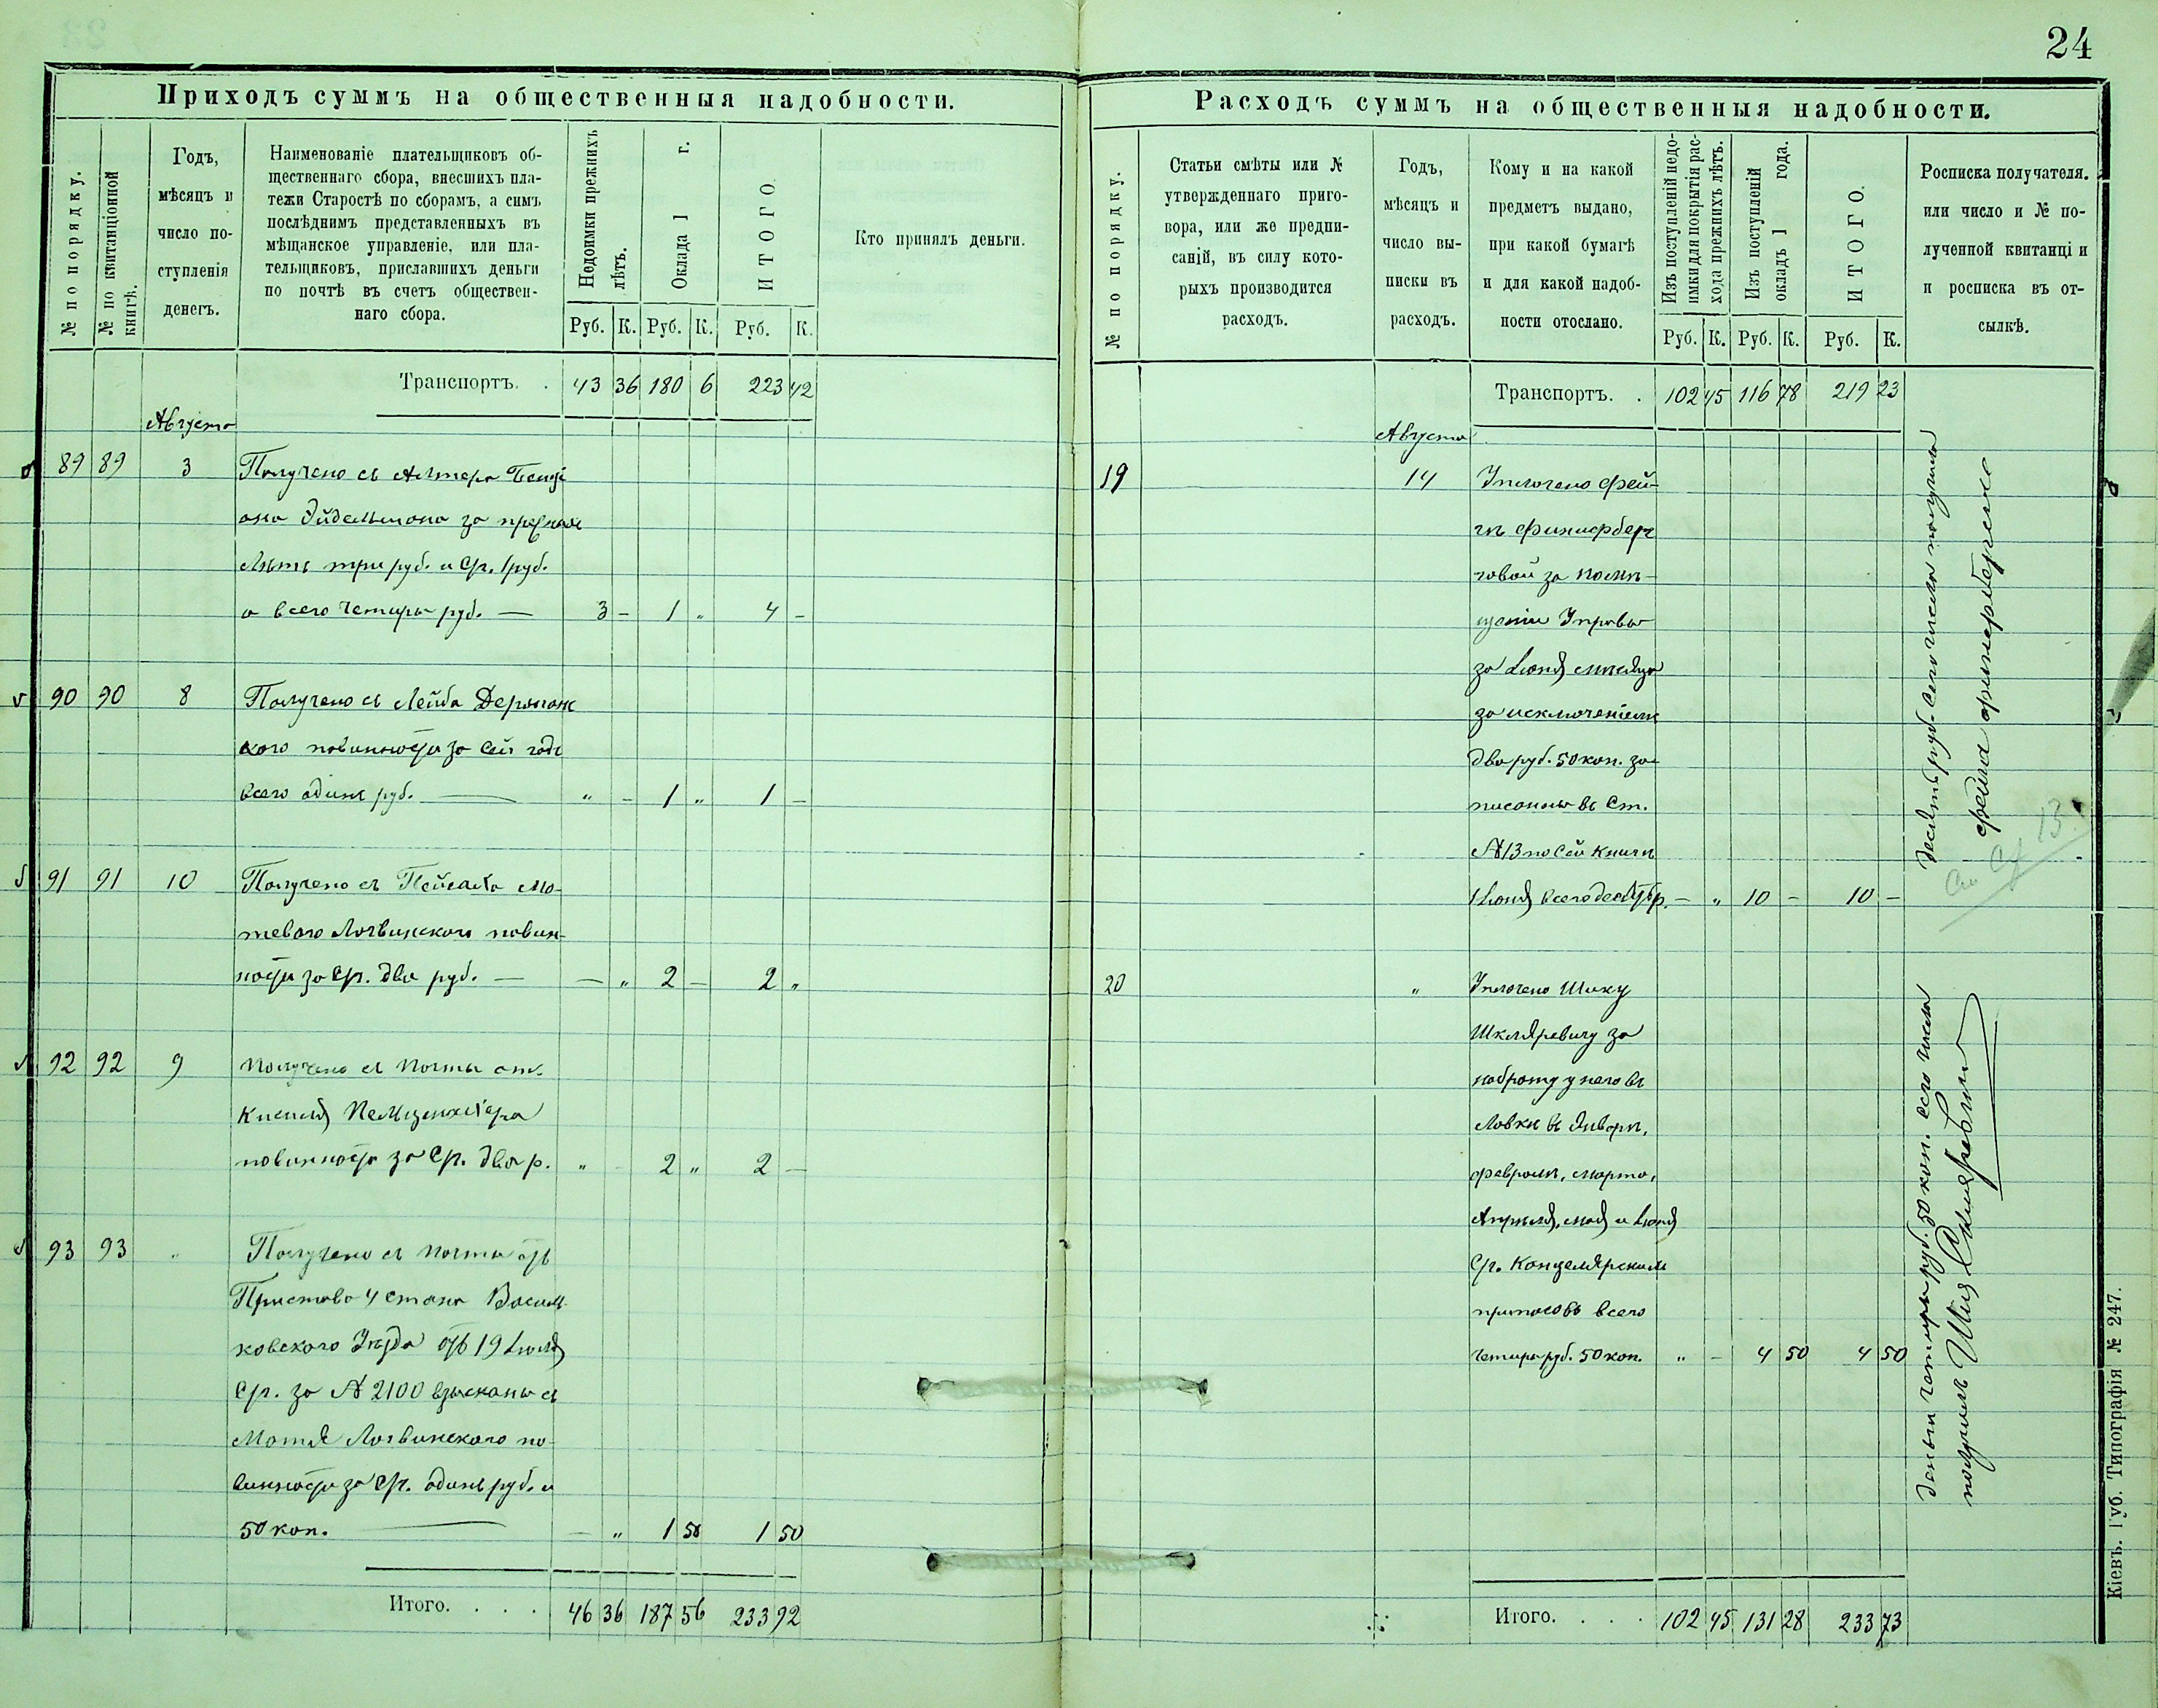 24
Приходъ суммъ на общественныя надобности.
№ по порядку.
№ по квитанціонной книгѣ.
Годъ,
мѣсяцъ и
число по-
ступленія
денегъ.
Наименованіе плательщиковъ об-
щественнаго сбора, внесшихъ пла-
тежи Старостѣ по сборамъ, а симъ
послѣднимъ представленныхъ въ
мѣщанское управленіе, или пла-
тельщиковъ, приславшихъ деньги
по почтѣ въ счетъ обществен-
наго сбора.
Недоимки прежнихъ
лѣтъ.
Оклада 1 г.
ИТОГО.
Кто принялъ деньги.
Руб. К. Руб. К. Руб. К.
Транспортъ. . 43 36 180 6 223 42
Августа
89 89 3 Получено съ Алтера Бенці
она Эйдельмана за прежн.
Лѣтъ три руб. и Сг. 1 руб.
а всего четыри руб. — 3 - 1 „ 4 -
90 90 8 Получено съ Лейба
кого повинности за сей годъ
всего одинъ руб. — „ - 1 „ 1 -
91 91 10 Получено съ Пейсаха Мо-
тевого Логвинского повин-
ности за Сг. два руб. — — „ 2 - 2 „
92 92 9 Получено съ Почты отъ
Киселя
повинности за Сг. два р. „ - 2 „ 2 -
93 93 „ Получено съ почты отъ
Пристава 4 стана Василь-
ковского Уѣзда отъ 19 Іюля
Сг. за № 2100 взысканы съ
Мотя Логвинского по-
винности за Сг. одинъ руб. и
50 коп. — — „ 1 50 1 50
Итого. . . . 46 36 187 56 233 92
Расходъ суммъ на общественныя надобности.
№ по порядку.
Статьи смѣты или №
утвержденнаго приго-
вора, или же предпи-
саній, въ силу кото-
рыхъ производится
расходъ.
Годъ,
мѣсяцъ и
число вы-
писки въ
расходъ.
Кому и на какой
предметъ выдано,
при какой бумагѣ
и для какой надоб-
ности отослано.
Изъ поступленій недо-
имки для покрытія рас-
хода прежнихъ лѣтъ.
Изъ поступленій
окладъ 1 года.
ИТОГО.
Росписка получателя.
или число и № по-
лученной квитанці и
и росписка въ от-
сылкѣ.
Руб. К. Руб. К. Руб. К.
Транспортъ. . 102 45 116 78 219 23
Августа
19 14 Уплочено Фей-
гѣ Финифберг
говой за помѣ-
щеніи Управы
за Іюнь мѣсяцъ
за исключеніемъ
два руб. 50 коп. за-
писаны въ Ст.
№ 13 по сей книги
1 Іюня всего десять р. - „ 10 - 10 -
20 „ Уплочено Шику
Шкляревичу за
наброту у него въ
Лавки въ Январѣ,
февралѣ, марта,
Апрѣля, мая и Іюня
Сг. Канцелярскими
припасовъ всего
четыри руб. 50 коп. „ - 4 50 4 50
Итого. . . . 102 45 131 28 233 73
Десять руб. сего числа получила
Фейга
См. Ст 13.
Деньги четыри руб. 50 коп. сего числа
получилъ Шия Шкляревичъ
Кіевъ. Губ. Типографія № 247.